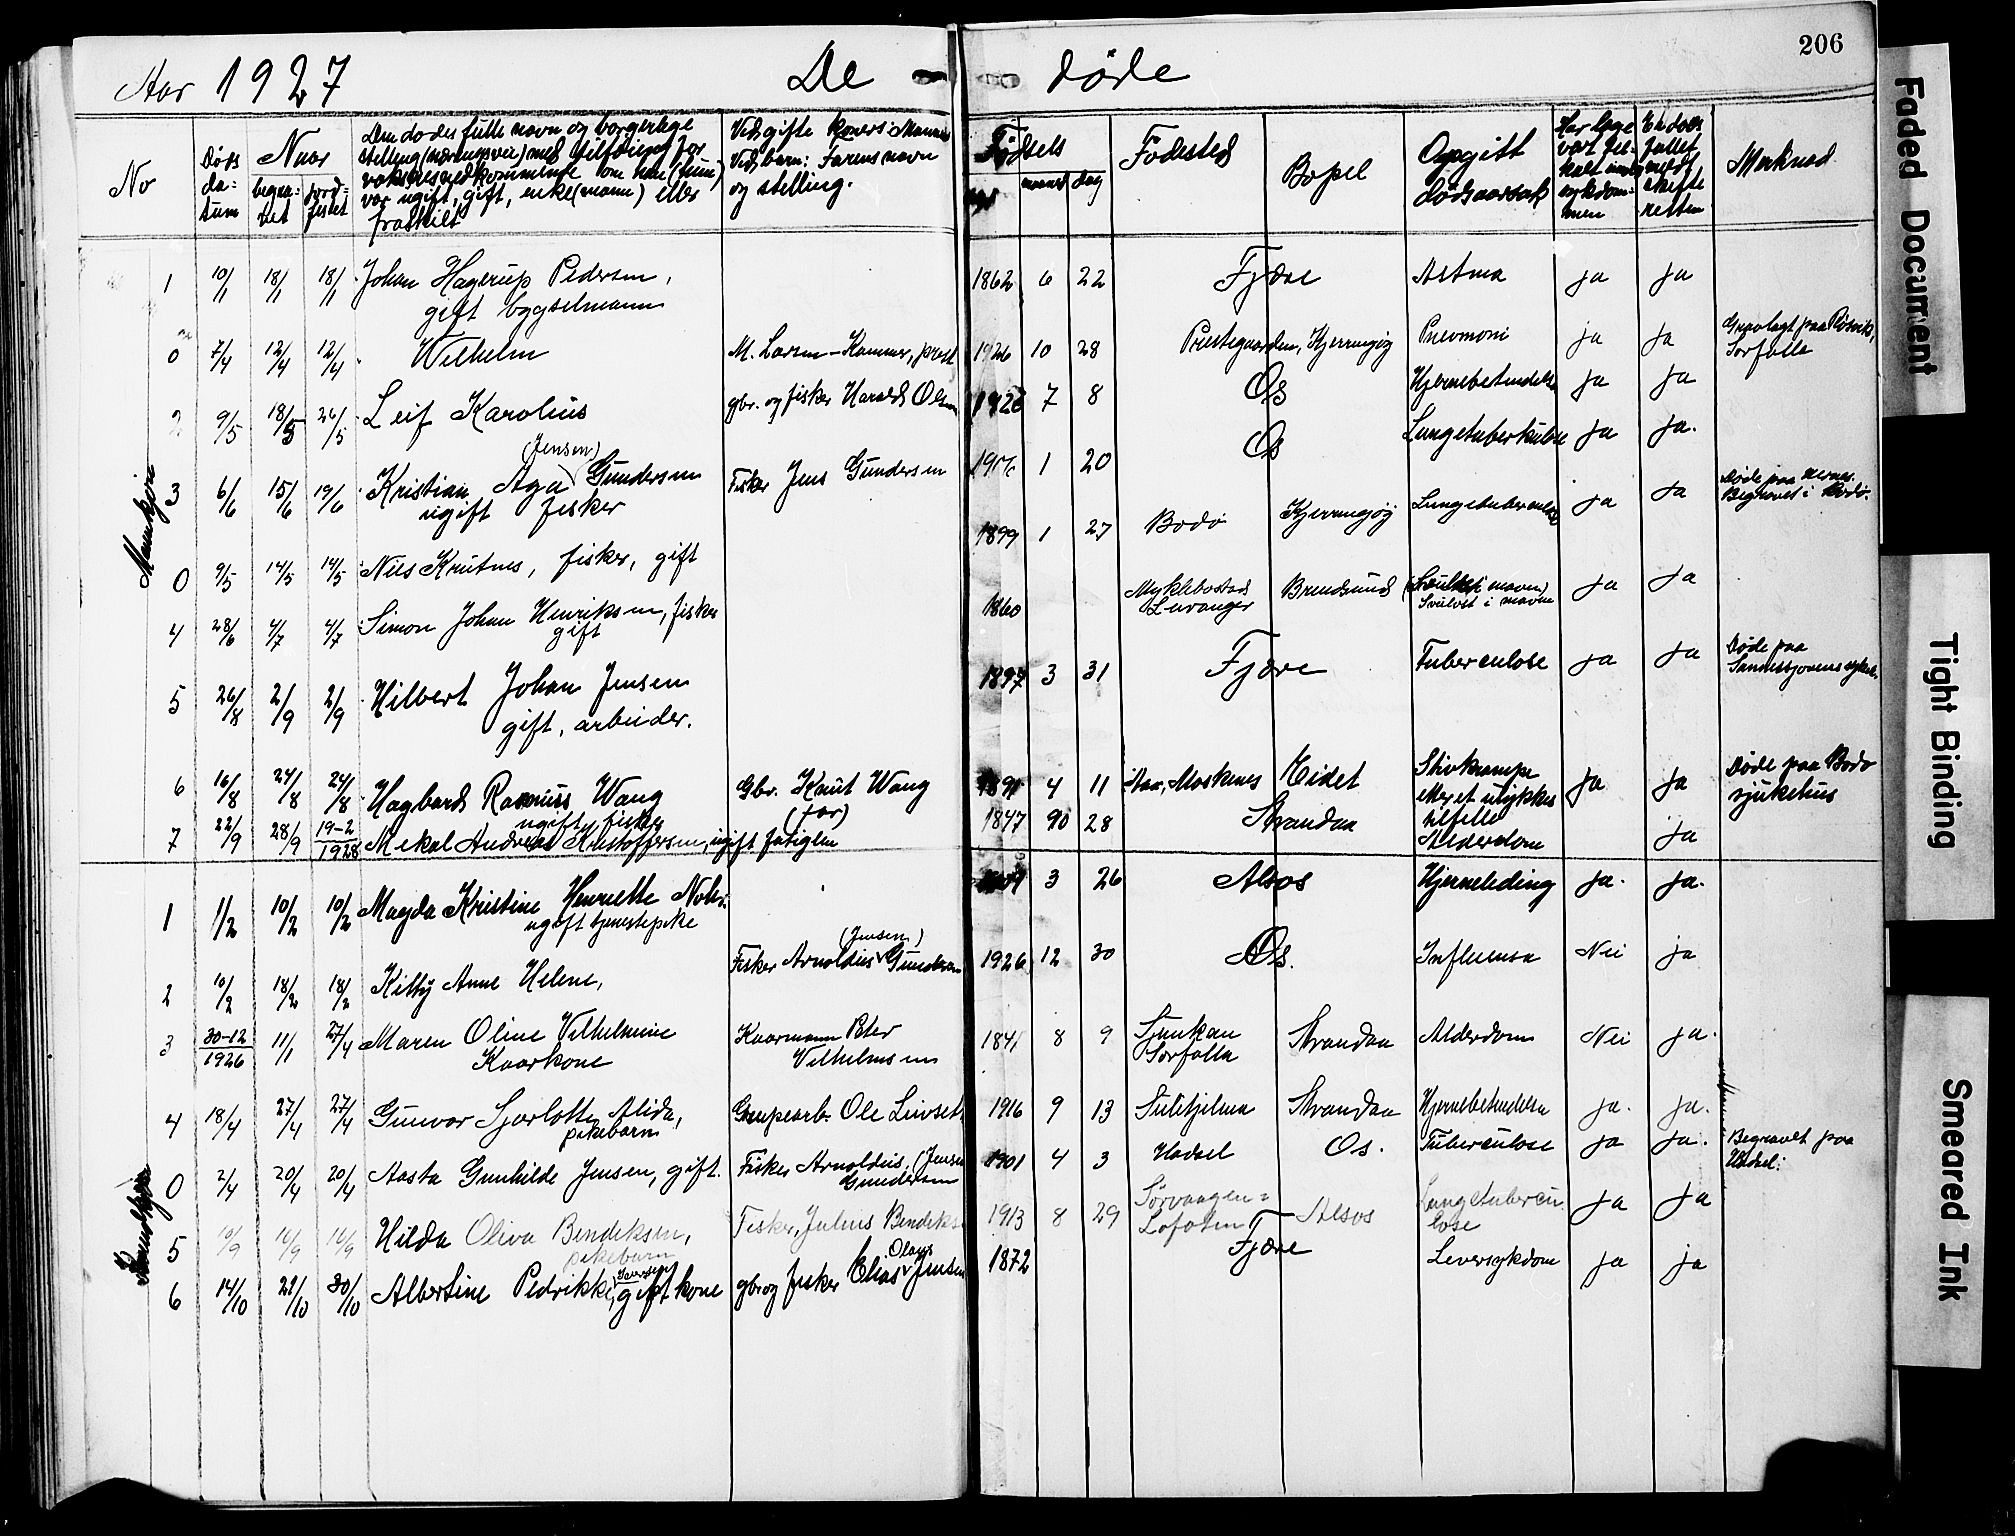 206
Aar 1927
De døde
No
Døds da= tum
Naar
begra= vet
jord= festet
Den dødes fulle navn og borgerlige
stelling (næringsvei) med tilføielse for
voksnes vedkommende om han (hun)
var ugift, gift, enke(mann) eller
fraskilt
Ved gifte koner: Mannens
Ved barn: Farens navn
og stelling.
Fødsels
aar maaned dag
Fødested
Bopel
Opgitt
dødsaarsak
Har læge
vært
under
sykdom=
men
Er døds
fallet
meldt
skifte
retten
Merknad
Mannkjøn
1 10/1 18/1 18/1 Johan Hagerup Pedersen, 1862 6 22 Fjære Astma ja ja
gift bygselmann
0 7/4 12/4 12/4 Wilhelm M. Larsen-Kammer, prest 1926 10 28 Prestegaarden, Kjerringøy Pnevmoni ja ja Gravlagt paa Røsvik,
Sørfolla
2 9/5 18/5 26/5 Leif Karolius gbr. og fisker Harald Olsen 1926 7 8 Os Hjernebetendelse ja ja
3 6/6 15/6 19/6 Kristian Aga (Jensen) Gundersen Fisker Jens Gundersen 1 20 Os Lungetuberkulose ja ja.
ugift fisker
0 9/5 14/5 14/5 Nils Knutnes, fisker, gift 1899 1 27 Bodø Kjerringøy Lungetuberculose ja ja Døde paa
Begravet i Bodø.
4 28/6 4/7 4/7 Simon Johan Henriksen, fisker 1860 Myklebostad Brendsund (Svulst i maven) ja ja
gift Levanger Svulst i maven
5 26/8 2/9 2/9 Hilbert Johan Jensen 1897 3 31 Fjære Tuberculose ja ja Døde paa
gift, arbeider. Sandnessjøens sykeh.
6 16/8 24/8 24/8 Hagbard Rasmus Wang Gbr. Knut Wang 1891 4 11 Aaa, Moskenes Eidet Stivkrampe ja ja Døde paa Bodø
ugift, fisker (far) etter et ulykkes sjukehus
tilfelle
7 22/9 28/9 19-2/1928 Mekal Andreas Kristoffersen, ugift fatiglem 1847 90 28 Strandaa Alderdom ja
Kvinnekjøn
1 1/2 10/2 10/2 Magda Kristine Henriette 3 26 Alsos Hjerneleding ja. ja.
ugift tjenestepike
2 10/2 18/2 18/2 Kitty Anne Helene, Fisker Arnoldius (Jensen) Gundersen 1926 12 30 Os. Influensa Nei ja
3 30-12/1926 11/1 27/4 Maren Oline Vilhelmine Kaarmann Peter 1841 8 9 Sjunkan Strandaa Alderdom Nei ja.
Kaarkone Vilhelmsen Sørfolla
4 18/4 27/4 27/4 Gunvor Sjarlotte Alida, Grupearb. Ole Livset 1916 9 13 Sulitjelma Strandaa Hjernebetendelse ja. ja.
pikebarn
0 2/4 20/4 20/4 Aasta Gunhilde Jensen, gift. Fisker Arnoldius (Jensen 1901 4 3 Hadsel Os. Tuberculose ja ja. Begravet paa
Gundersen Hadsel.
5 10/9 16/9 16/9 Hilda Oliva Bendiksen, Fisker, Julius Bendiks 1913 8 29 Sørvaagen= Alsos Lungetubercu ja ja
pikebarn Lofoten lose
6 14/10 21/10 30/10 Albertine Pedrikke, gift kone gbr og fisker Elias Olaus Jensen 1872 Fjære Leversykdom ja ja
Faded Document
Tight Binding
Smeared Ink